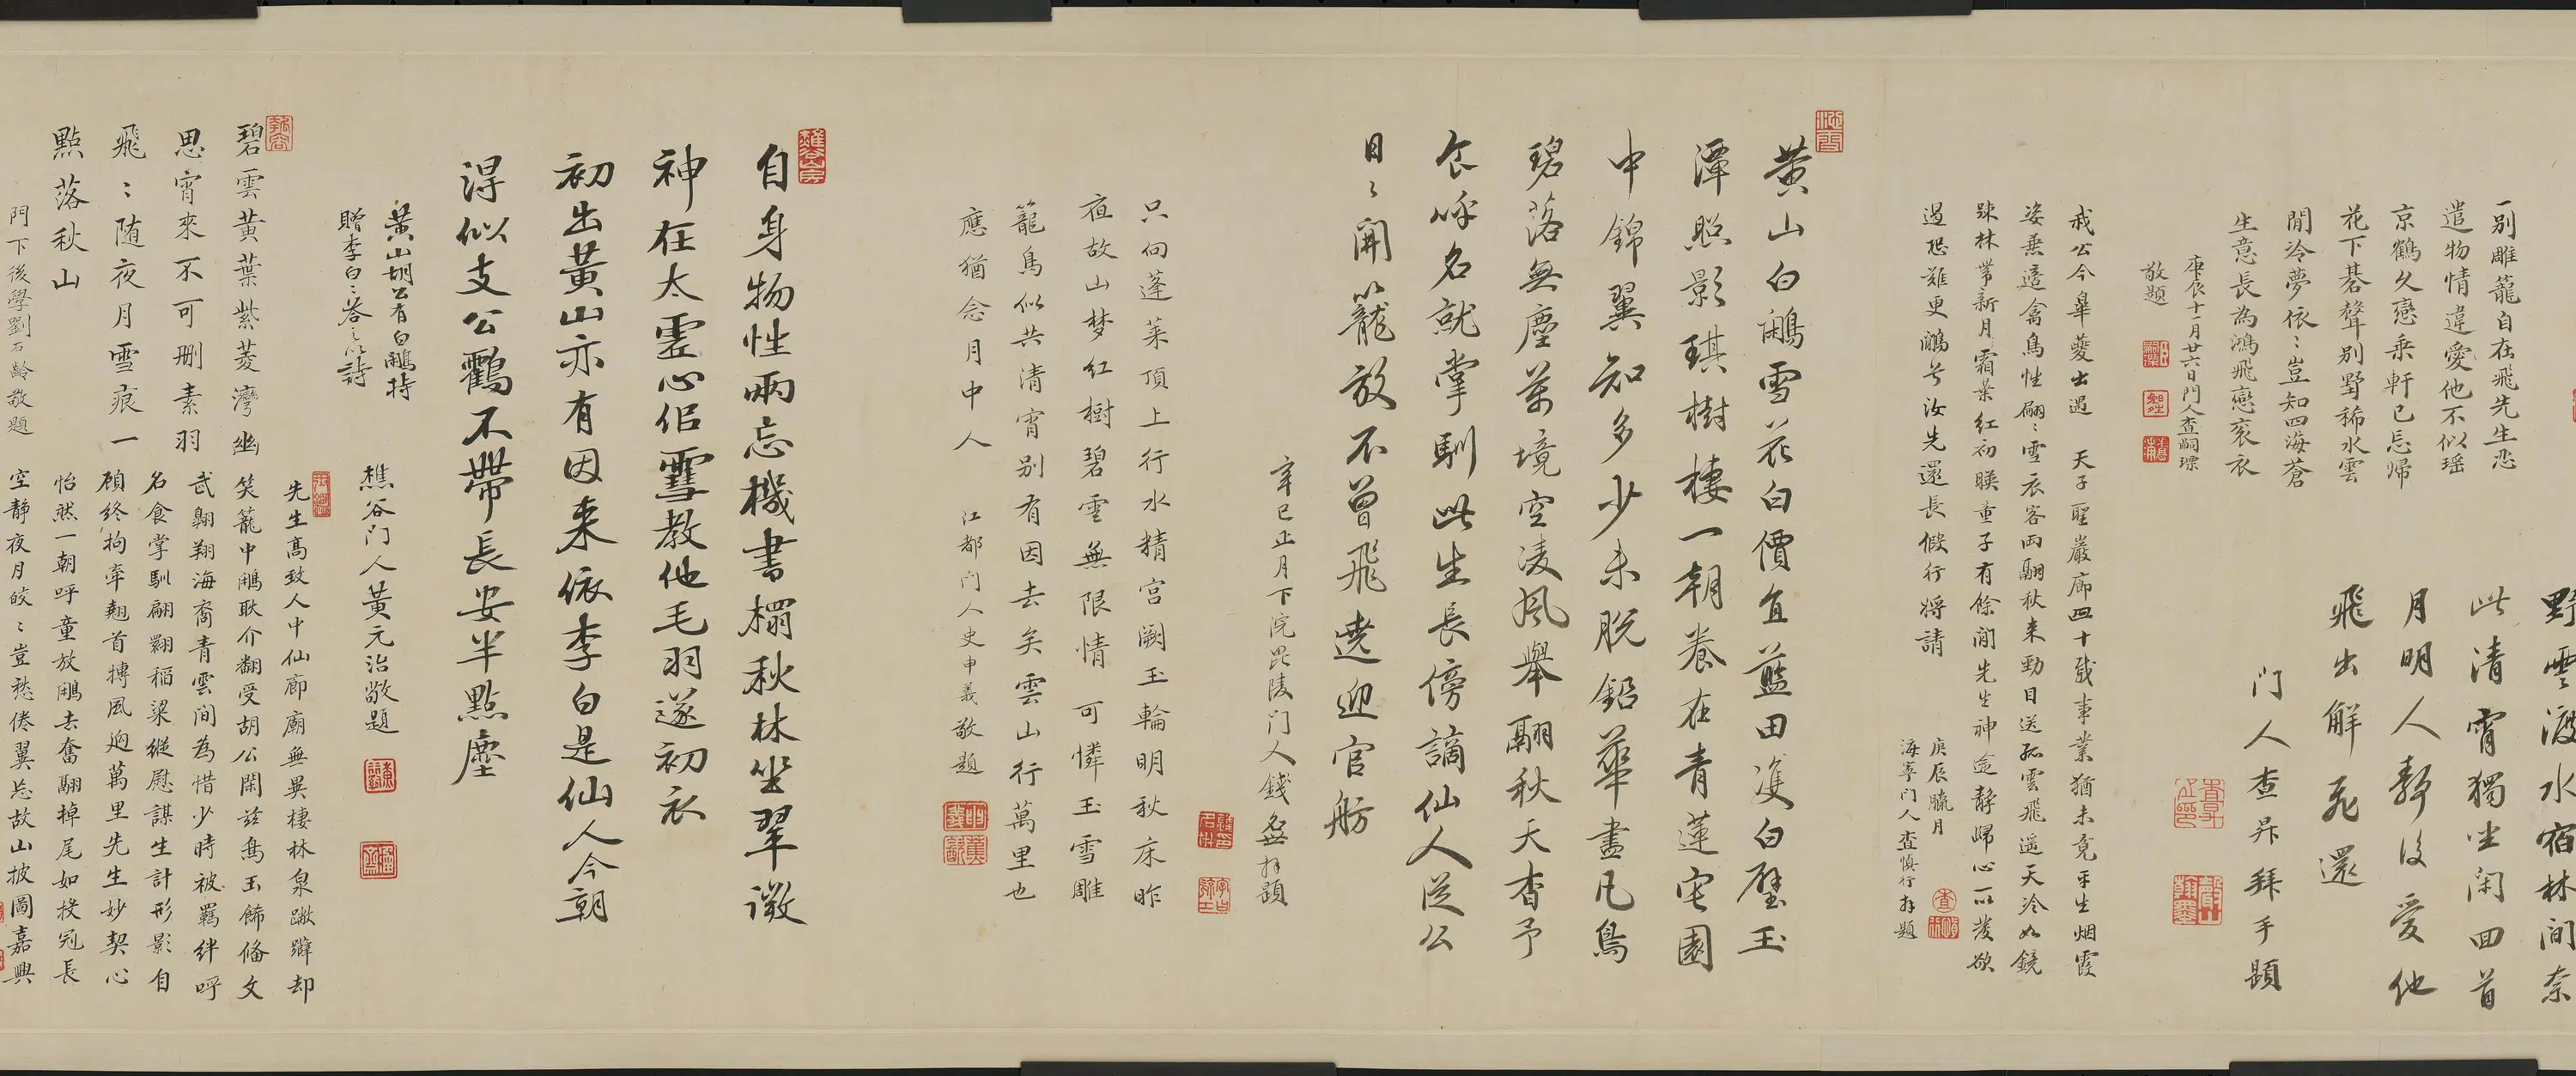 野雲渡水宿林間奈
此清宵獨坐閑回首
月明人靜後愛他
飛出解飛還
門人查昇拜手題
一別雕籠自在飛先生恋
遣物情違愛他不似瑶
京鶴久戀乘軒已忘歸
花下碁聲別墅稀水雲
閒冷夢依〻豈知四海蒼
生意長為鴻飛戀衮衣
庚辰十一月廿六日門人查嗣瑮
敬題
我公今皐夔出遇 天子聖巖廊四十載事業猶未竟平生烟霞
姿兼適禽鳥性翩〻雪衣客兩翮秋来勁目送孤雲飛遥天冷如鏡
疎林帶新月霜葉紅初暎童子有餘閒先生神逾靜歸心一以发欲
過恐難更鷳兮汝先還長假行将請
庚辰臘月
海寧门人查慎行拜題
黄山白鷳雪花白價宜藍田䨇白璧玉
潭照影琪樹棲一朝養在青蓮宅園
中錦翼知多少未脱鉛華盡凡鳥
碧落無塵萬境空凌風舉翮秋天杳予
食呼名就掌馴此生長傍謫仙人從公
日〻開籠放不曾飛遶迎官舫
辛巳正月下浣毘陵门人錢名世拜題
只向蓬莱頂上行水精宫闕玉輪明秋床昨
夜故山梦红樹碧雲無限情 可憐玉雪雕
籠鳥似共清宵别有因去矣雲山行萬里也
應猶念月中人
江都门人史申義敬題
自身物性兩忘機書榻秋林坐翠微
神在太虚心侣雪教他毛羽遂初衣
初出黄山亦有因来依李白是仙人今朝
淂似支公鸖不帶長安半點塵
黄山胡公有白鷳持
贈李白〻答之以詩
樵谷门人黄元治敬題
碧雲黄葉紫菱灣幽
思宵來不可刪素羽
飛〻随夜月雪痕一
點落秋山
門下後學劉石齡敬題
先生髙致人中仙廊廟無異棲林泉蹴躃却
笑籠中鷳耿介翻受胡公閑兹鳥玉飾俻文
武翱翔海裔青雲間為惜少時被羈绊呼
名食掌馴翩翾稻粱縱慰謀生計形影自
顧終拘牽翹首摶風迥萬里先生妙契心
怡然一朝呼童放鷳去奮翮掉尾如挍冠長
空静夜月皎〻豈愁倦翼忘故山披圖嘉興